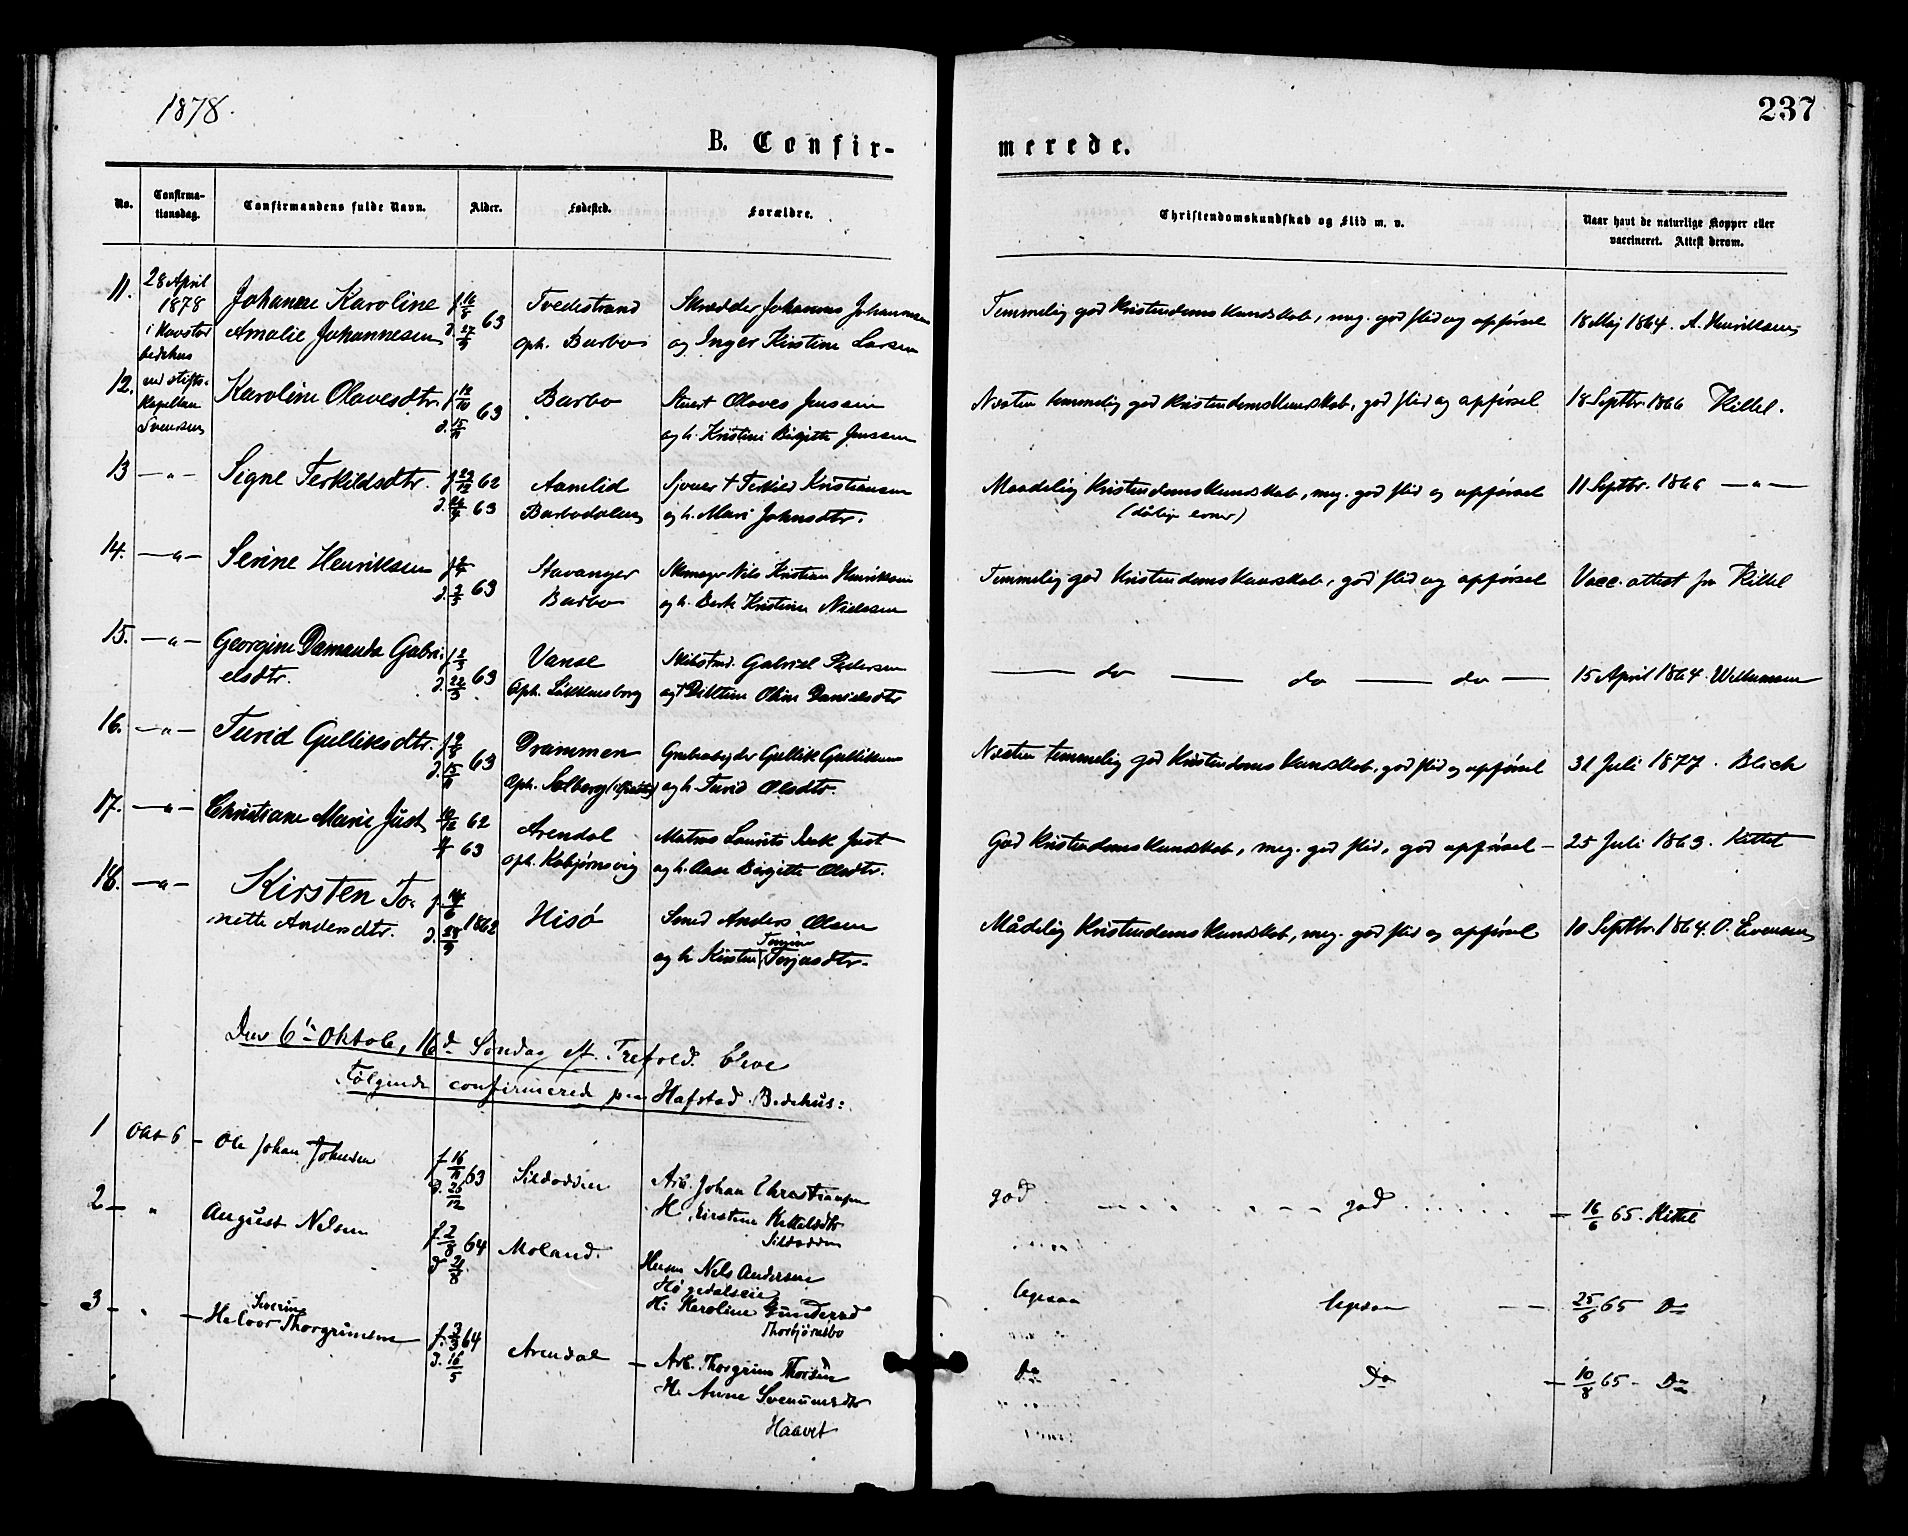 1878.
237
B. Confir-
merede.
No.
Confirma-
tionsdag.
Confirmandens fulde Navn.
Alder.
Fødested.
Forældre.
Christendomskundskab og Flid m. v.
Naar havt de naturlige Kopper eller
vaccineret. Attest derom.
11.
28 April
1878
bedehus
Johanne Karoline
Amalie Johannesen
63
Tvedestrand
oph. Barbo
Skrædder Johannes Johannesen
og Inger Kirstine Larsen
Temmelig god Kristendomskundskab, meg. god flid og opførsel
18 Maj 1864. A. Henriksen
12.
ved stifts-
kapellan
Svensen
Karoline Olavesdtr.
63
Barbo
Stuert Olaves Jensen
og h. Kristine Birgitte Jenssen
Næsten temmelig god Kristendomskundskab, god flid og opførsel
18 Septbr. 1866 Kittel.
13 — " —
Signe Terkildsdtr.
62
63
Aamlid
Barbodalen
Terkild Kristiansen
og h. Mari Johnsdtr.
Maadelig Kristendomskundskab, meg. god flid og opførsel
(dårlige evner)
11 Septbr. 1866 — " —
14. — " —
Serine Henriksen
63
Stavanger
Barbo
Nils Kristian Henriksen
og h. Kristine Nielsen
Temmelig god Kristendomskundskab, god flid og opførsel
Vacc. attest fra Kittel
15. — " —
Georgine Damanda Gabri-
elsdtr.
63
Vanse
Oph. Løkkensborg
Gabriel Pedersen
Oline Danielsdtr
— do — do — do —
15 April 1864.
16. — " —
Turid Gulliksdtr.
63
Drammen
Oph. Solberg
Grubearbejder Gullik Gulliksen
og h. Turid Olsdtr.
Næsten temmelig god Kristendomskundskab, god flid og opførsel
31 Juli 1877. Blich
17. — " —
Christiane Marie Just
62
63
Arendal
oph. Kolbjørnsvig
Matros Laurits Just
og h. Aase Birgitte Olsdtr.
God Kristendomskundskab, meg. god flid, god opførsel —
25 Juli 1863. Kittel
18. — " —
Kirsten To-
nette Andersdtr.
1862
Hisø
Smed Anders Olsen
og h Kirstine Terjesdtr.
Mådelig Kristendomskundskab, meg. god flid og opførsel
10 Septbr. 1864. O. Evensen
Den 6te Oktob, 16d Søndag ef. Trefold. bleve
Følgende confirmered paa Hafstad Bedehus:
1
Okt 6 —
Ole Johan Johnsen
f 16/11 63
d. 26/12
Sildodden
Arb. Johan Christiansen
H. Kirstine Kittelsdtr
Sildodden
god
god
— 16/6 65. Kittel
2 — "
August Nelsen
f. 2/8 64
d 21/8
Moland.
Husm Nels Andersen
Høgedalseie
H: Karoline Gundersd
Thorbjørnsbo
Ligesaa
Ligesaa
— 25/6 65 Do
3 — "
Severin
— Halvor Thorgrimsen
f. 3/3 64
d. 16/5
Arendal —
Arb. Thorgrim Thorsen
H. Anne Svenumsdtr
Haavet
Do
Do
— 10/8 65 — Do